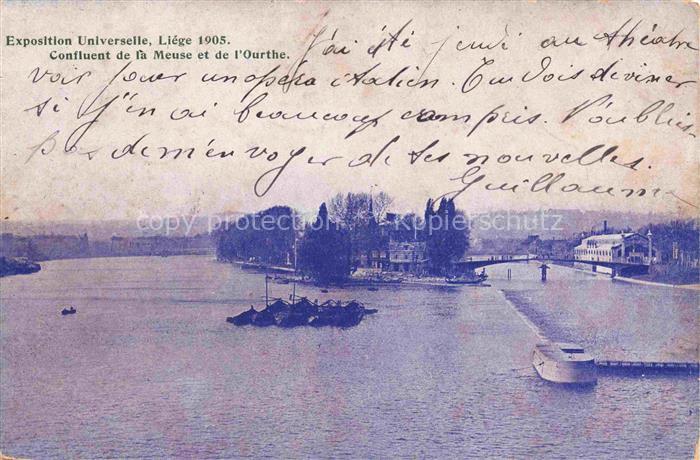 Exposition Universelle, Liége 1905.
Confluent de la Meuse et de l'Ourthe.
J'ai été jeudi au théatre
voir jouer un opéra italien. Tu dois deviner
si j'en ai beaucoup compris. N'oublie
pas de m'envoyer de tes nouvelles.
Guillaume
copy protection Kopierschutz